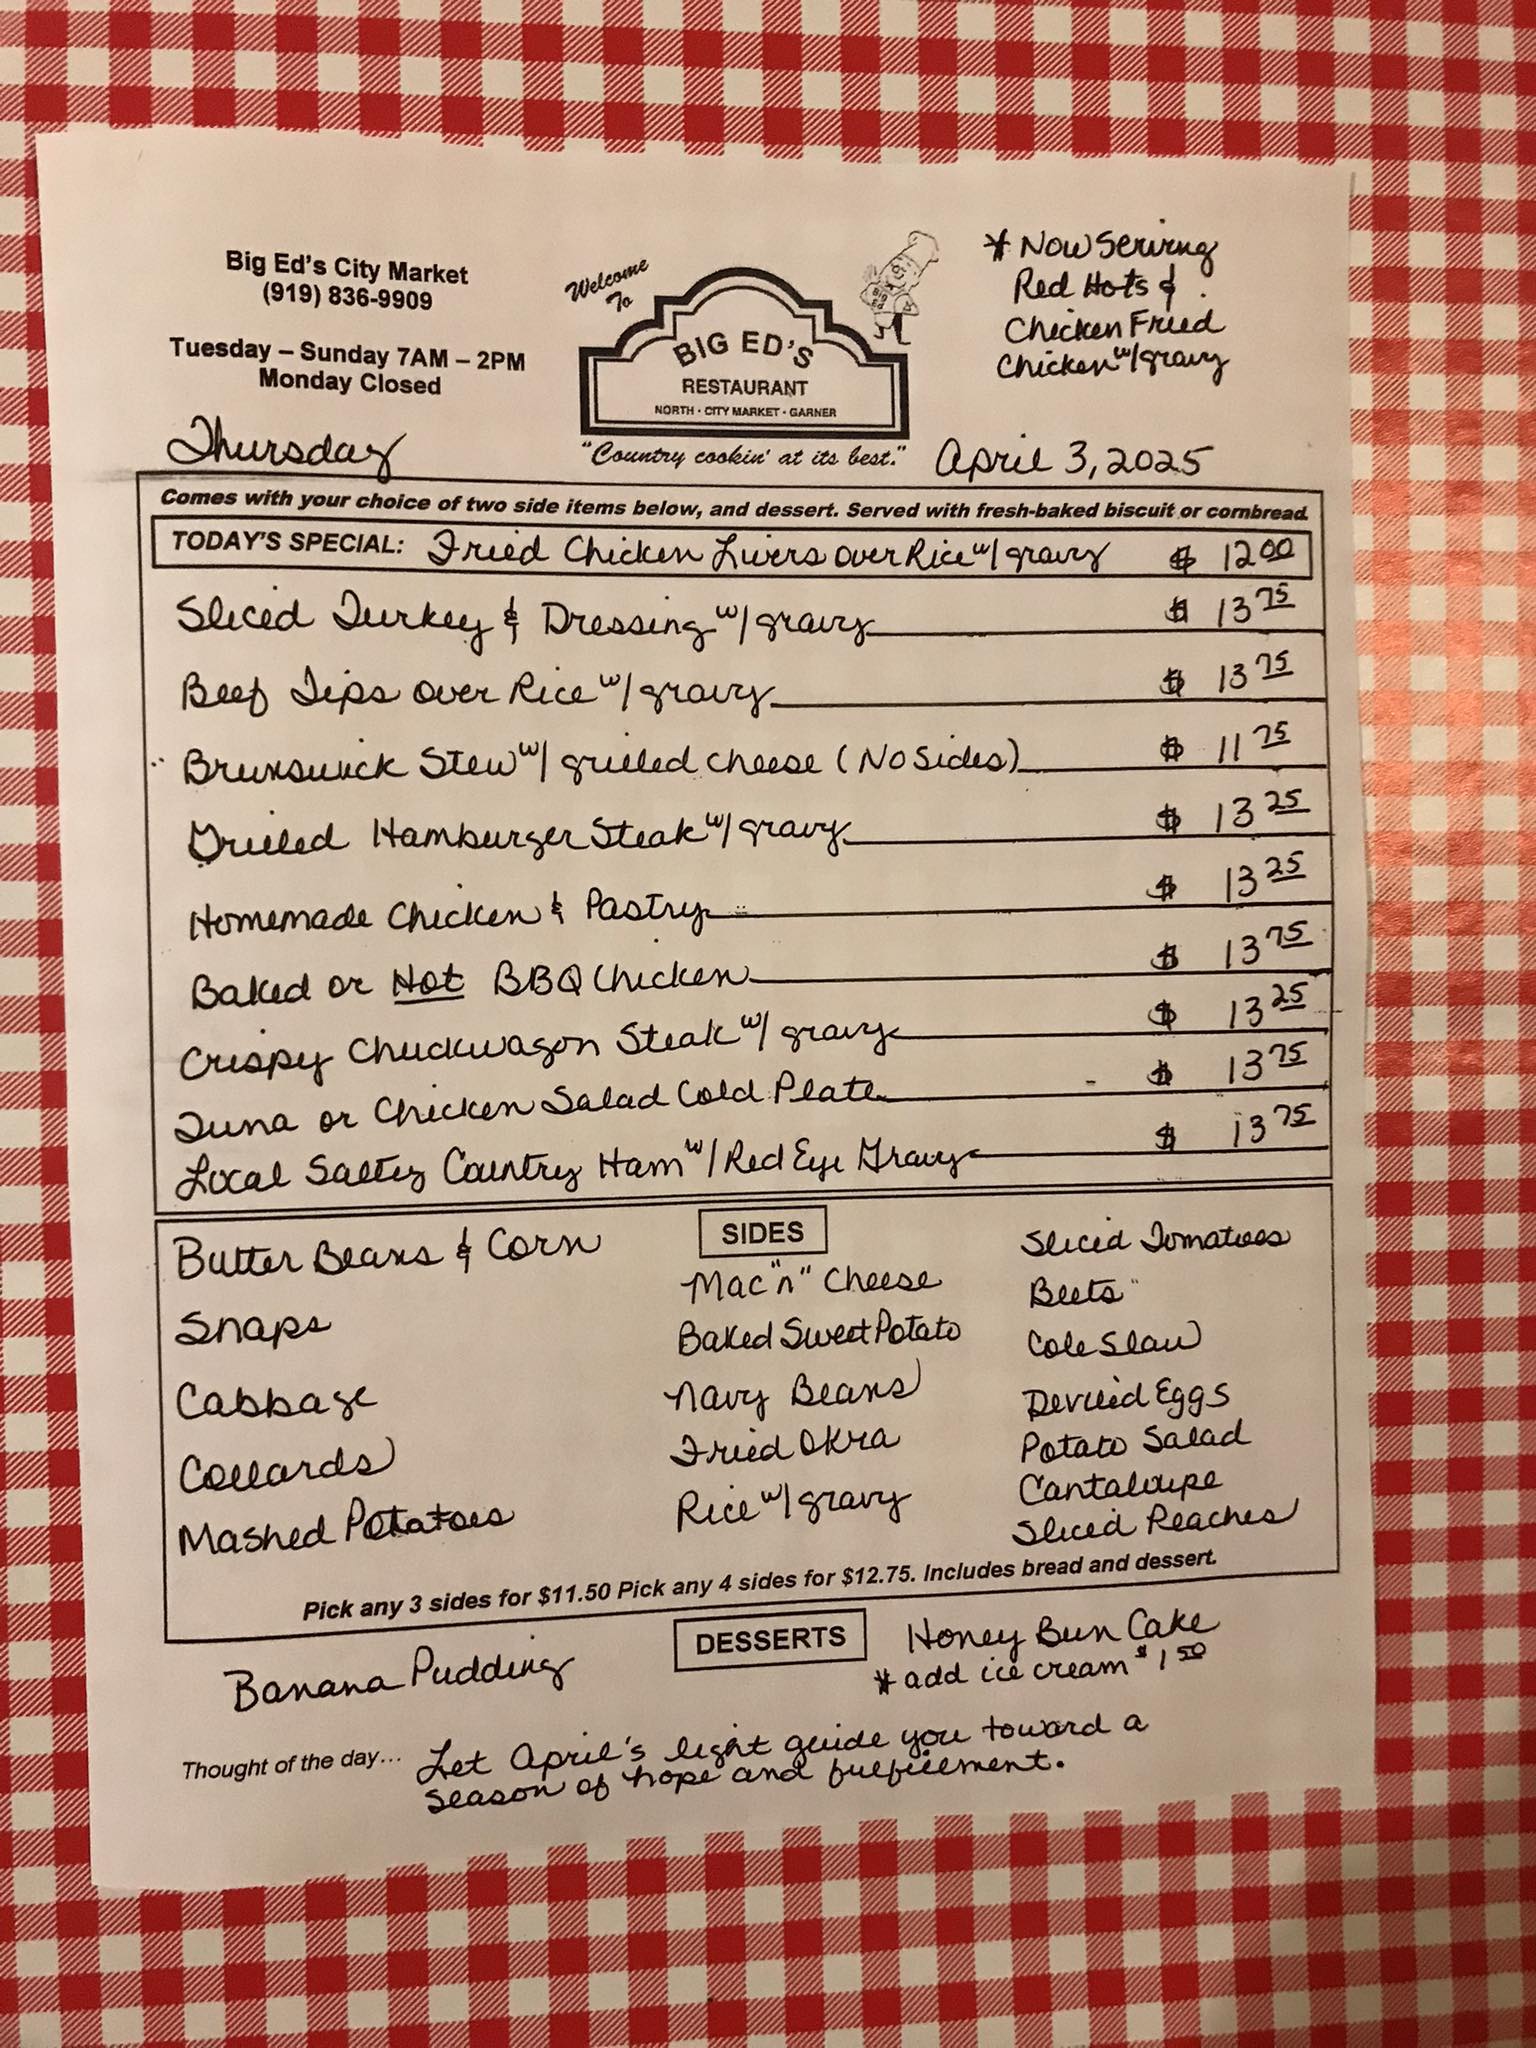 Big Ed's City Market
(919) 836-9909
Tuesday – Sunday 7AM – 2PM
Monday Closed
Welcome
To
BIG ED'S
RESTAURANT
NORTH · CITY MARKET · GARNER
"Country cookin' at its best."
Big
Ed
* Now Serving
Red Hots &
Chicken Fried
Chicken w/ gravy
Thursday
April 3, 2025
Comes with your choice of two side items below, and dessert. Served with fresh-baked biscuit or cornbread.
TODAY'S SPECIAL: Fried Chicken Livers over Rice w/ gravy $ 12.00
Sliced Turkey & Dressing w/ gravy $ 13.75
Beef Tips over Rice w/ gravy $ 13.75
Brunswick Stew w/ grilled cheese (No Sides) $ 11.75
Grilled Hamburger Steak w/ gravy $ 13.25
Homemade Chicken & Pastry $ 13.25
Baked or Hot BBQ Chicken $ 13.75
Crispy Chuckwagon Steak w/ gravy $ 13.25
Tuna or Chicken Salad Cold Plate $ 13.75
Local Salty Country Ham w/ Red Eye Gravy $ 13.75
SIDES
Butter Beans & Corn
Snaps
Cabbage
Collards
Mashed Potatoes
Mac "n" Cheese
Baked Sweet Potato
Navy Beans
Fried Okra
Rice w/ gravy
Sliced Tomatoes
Beets
Cole Slaw
Deviled Eggs
Potato Salad
Cantaloupe
Sliced Peaches
Pick any 3 sides for $11.50 Pick any 4 sides for $12.75. Includes bread and dessert.
DESSERTS
Banana Pudding
Honey Bun Cake
* add ice cream $1.50
Thought of the day... Let April's light guide you toward a
season of hope and fulfillment.